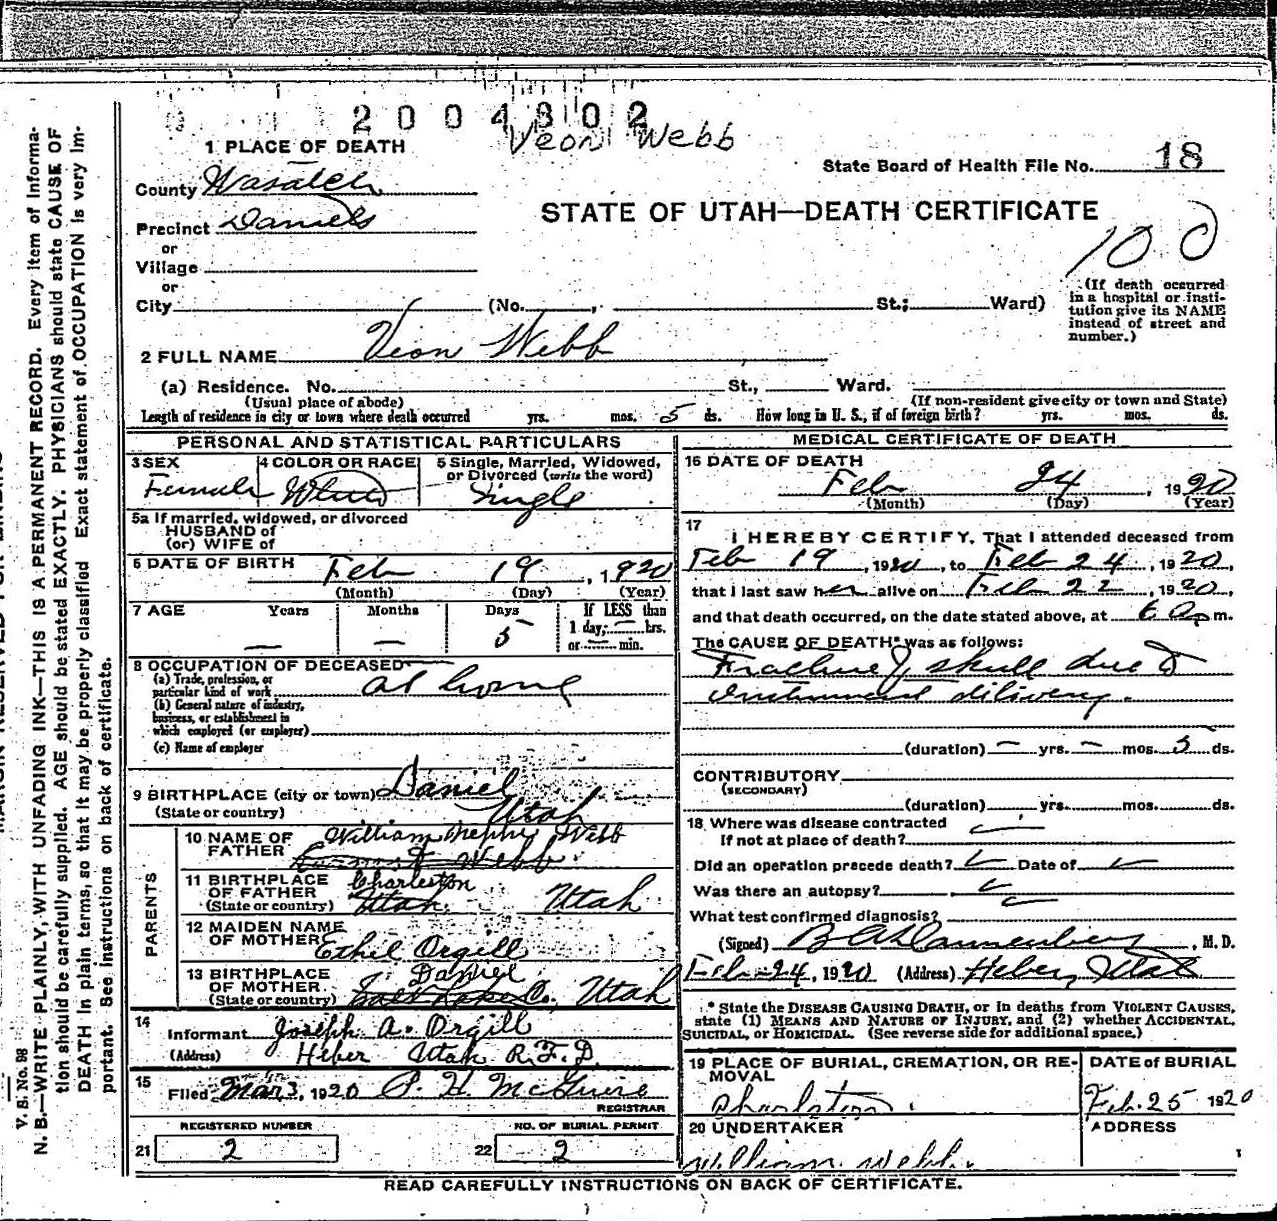 2004302
Veon Webb
1 PLACE OF DEATH
State Board of Health File No. 18
County Wasatch
STATE OF UTAH—DEATH CERTIFICATE
Precinct Daniels
100
or
Village
or
City (No. , St.; Ward)
(If death occurred in a hospital or institution give its NAME instead of street and number.)
2 FULL NAME Veon Webb
(a) Residence. No. St., Ward.
(Usual place of abode) (If non-resident give city or town and State)
Length of residence in city or town where death occurred yrs. mos. 5 ds. How long in U. S., if of foreign birth? yrs. mos. ds.
PERSONAL AND STATISTICAL PARTICULARS
3 SEX 4 COLOR OR RACE 5 Single, Married, Widowed,
or Divorced (write the word)
Female White Single
5a If married, widowed, or divorced
HUSBAND of
(or) WIFE of
6 DATE OF BIRTH Feb 19, 1920
(Month) (Day) (Year)
7 AGE Years Months Days If LESS than
— — 5 1 day; — hrs.
or — min.
8 OCCUPATION OF DECEASED
(a) Trade, profession, or
particular kind of work at home
(b) General nature of industry,
business, or establishment in
which employed (or employer)
(c) Name of employer
9 BIRTHPLACE (city or town) Daniel
(State or country) Utah
PARENTS
10 NAME OF William Nephi Webb
FATHER Webb
11 BIRTHPLACE Charleston
OF FATHER
(State or country) Utah Utah
12 MAIDEN NAME
OF MOTHER Ethel Orgill
13 BIRTHPLACE Daniel
OF MOTHER
(State or country) Salt Lake Co. Utah
14
Informant Joseph A. Orgill
(Address) Heber Utah R.F.D.
15
Filed Mar 3, 1920 P. H. McGuire
REGISTRAR
REGISTERED NUMBER NO. OF BURIAL PERMIT
21 2 22 2
MEDICAL CERTIFICATE OF DEATH
16 DATE OF DEATH
Feb 24, 1920
(Month) (Day) (Year)
17
I HEREBY CERTIFY, That I attended deceased from
Feb 19, 1920, to Feb 24, 1920,
that I last saw her alive on Feb 22, 1920,
and that death occurred, on the date stated above, at 6 pm.
The CAUSE OF DEATH* was as follows:
Fracture of skull due to
instrument dilivery.
(duration) — yrs. — mos. 5 ds.
CONTRIBUTORY
(SECONDARY)
(duration) yrs. mos. ds.
18 Where was disease contracted
If not at place of death?
Did an operation precede death? Date of
Was there an autopsy?
What test confirmed diagnosis?
(Signed) , M. D.
Feb 24, 1920 (Address) Heber, Utah
* State the DISEASE CAUSING DEATH, or in deaths from VIOLENT CAUSES,
state (1) MEANS AND NATURE OF INJURY, and (2) whether ACCIDENTAL,
SUICIDAL, or HOMICIDAL. (See reverse side for additional space.)
19 PLACE OF BURIAL, CREMATION, OR RE-
MOVAL
DATE OF BURIAL
Charleston. Feb. 25 1920
20 UNDERTAKER ADDRESS
William Webb.
READ CAREFULLY INSTRUCTIONS ON BACK OF CERTIFICATE.
V. S. No. 98
N. B.—WRITE PLAINLY, WITH UNFADING INK—THIS IS A PERMANENT RECORD. Every item of informa-
tion should be carefully supplied. AGE should be stated EXACTLY. PHYSICIANS should state CAUSE OF
DEATH in plain terms, so that it may be properly classified. Exact statement of OCCUPATION is very im-
portant. See instructions on back of certificate.